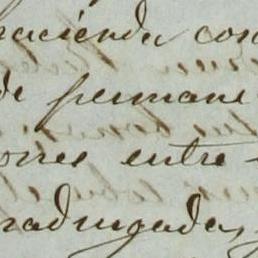 hacienda con
de permane
ores entre
radugadas,